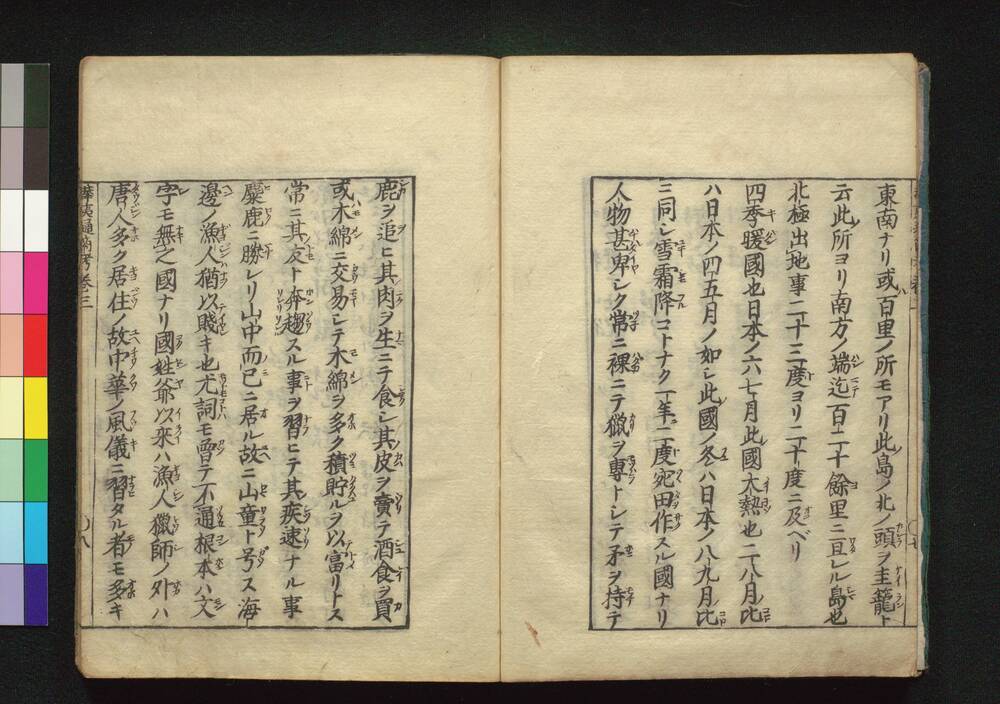 東南ナリ或ハ百里ノ所モアリ此島ノ北ノ頭ヲ圭籠ト
云此所ヨリ南方ノ端迄百二十餘里ニ亘レル島也
北極出地事二十三度ヨリ二十度ニ及ベリ
四季暖國也日本ノ六七月此國大熱也二八月ノ比
ハ日本ノ四五月ノ如シ此國ノ冬ハ日本ノ八九月ノ比
ニ同シ雪霜降コトナク一年ニ二度宛田作スル國ナリ
人物甚卑シク常ニ裸ニテ獵ヲ專トシテ矛ヲ持テ
鹿ヲ追ヒ其肉ヲ生ニテ食シ其皮ヲ賣テ酒食ヲ買
或ハ木綿ニ交易シテ木綿ヲ多ク積貯ルヲ以富リトス
常ニ其友ト奔趨スル事ヲ習ヒテ其疾速ナル事
麋鹿ニ勝レリ山中而已ニ居ル故ニ山童ト号ス海
邊ノ漁人猶以賤キ也尤詞モ曾テ不通根本ハ文
字モ無之國ナリ國姓爺以來ハ漁人獵師ノ外ハ
唐人多ク居住ノ故中華ノ風儀ニ習タル者モ多キ
華夷通商考卷三
〇八